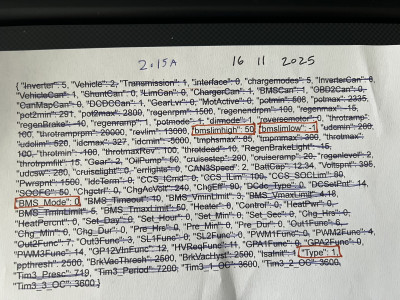 2.15A 16 11 2025
{ "Inverter": 5, "Vehicle": 2, "Transmission": 1, "interface": 0, "chargemodes": 5, "InverterCan": 0,
"VehicleCan": 1, "ShuntCan": 0, "LimCan": 0, "ChargerCan": 1, "BMSCan": 1, "OBD2Can": 0,
"CanMapCan": 0, "DCDCCan": 1, "GearLvr": 0, "MotActive": 0, "potmin": 508, "potmax": 2335,
"pot2min": 291, "pot2max": 2800, "regenrpm": 1500, "regenendrpm": 100, "regenmax": -15,
"regenBrake": -10, "regenramp": 1, "potmode": 1, "dirmode": 1, "reversemotor": 0, "throtramp":
100, "throtramprpm": 20000, "revlim": 13000, "bmslimhigh": 50, "bmslimlow": -1, "udcmin": 280,
"udclim": 520, "idcmax": 327, "idcmin": -5000, "tmphsmax": 85, "tmpmmax": 300, "throtmax":
100, "throtmin": -100, "throtmaxRev": 100, "throtdead": 10, "RegenBrakeLight": -15,
"throtrpmfilt": 15, "Gear": 2, "OilPump": 50, "cruisestep": 200, "cruiseramp": 20, "regenlevel": 2,
"udcsw": 280, "cruiselight": 0, "errlights": 0, "CAN3Speed": 2, "BattCap": 12.34, "Voltspnt": 395,
"Pwrspnt": 1500, "IdcTerm": 0, "CCS_ICmd": 0, "CCS_ILim": 100, "CCS_SOCLim": 80,
"SOCFC": 50, "Chgctrl": 0, "ChgAcVolt": 240, "ChgEff": 90, "DCdc_Type": 0, "DCSetPnt": 14,
"BMS_Mode": 0, "BMS_Timeout": 10, "BMS_VminLimit": 3, "BMS_VmaxLimit": 4.18,
"BMS_TminLimit": 5, "BMS_TmaxLimit": 50, "Heater": 0, "Control": 0, "HeatPwr": 0,
"HeatPercnt": 0, "Set_Day": 0, "Set_Hour": 0, "Set_Min": 0, "Set_Sec": 0, "Chg_Hrs": 0,
"Chg_Min": 0, "Chg_Dur": 0, "Pre_Hrs": 0, "Pre_Min": 0, "Pre_Dur": 0, "Out1Func": 6,
"Out2Func": 7, "Out3Func": 3, "SL1Func": 0, "SL2Func": 0, "PWM1Func": 0, "PWM2Func": 4,
"PWM3Func": 14, "GP12VInFunc": 12, "HVReqFunc": 11, "GPA1Func": 0, "GPA2Func": 0,
"ppthresh": 2500, "BrkVacThresh": 2500, "BrkVacHyst": 2500, "IsaInit": 1, "Type": 1,
"Tim3_Presc": 719, "Tim3_Period": 7200, "Tim3_1_OC": 3600, "Tim3_2_OC": 3600,
"Tim3_3_OC": 3600 }